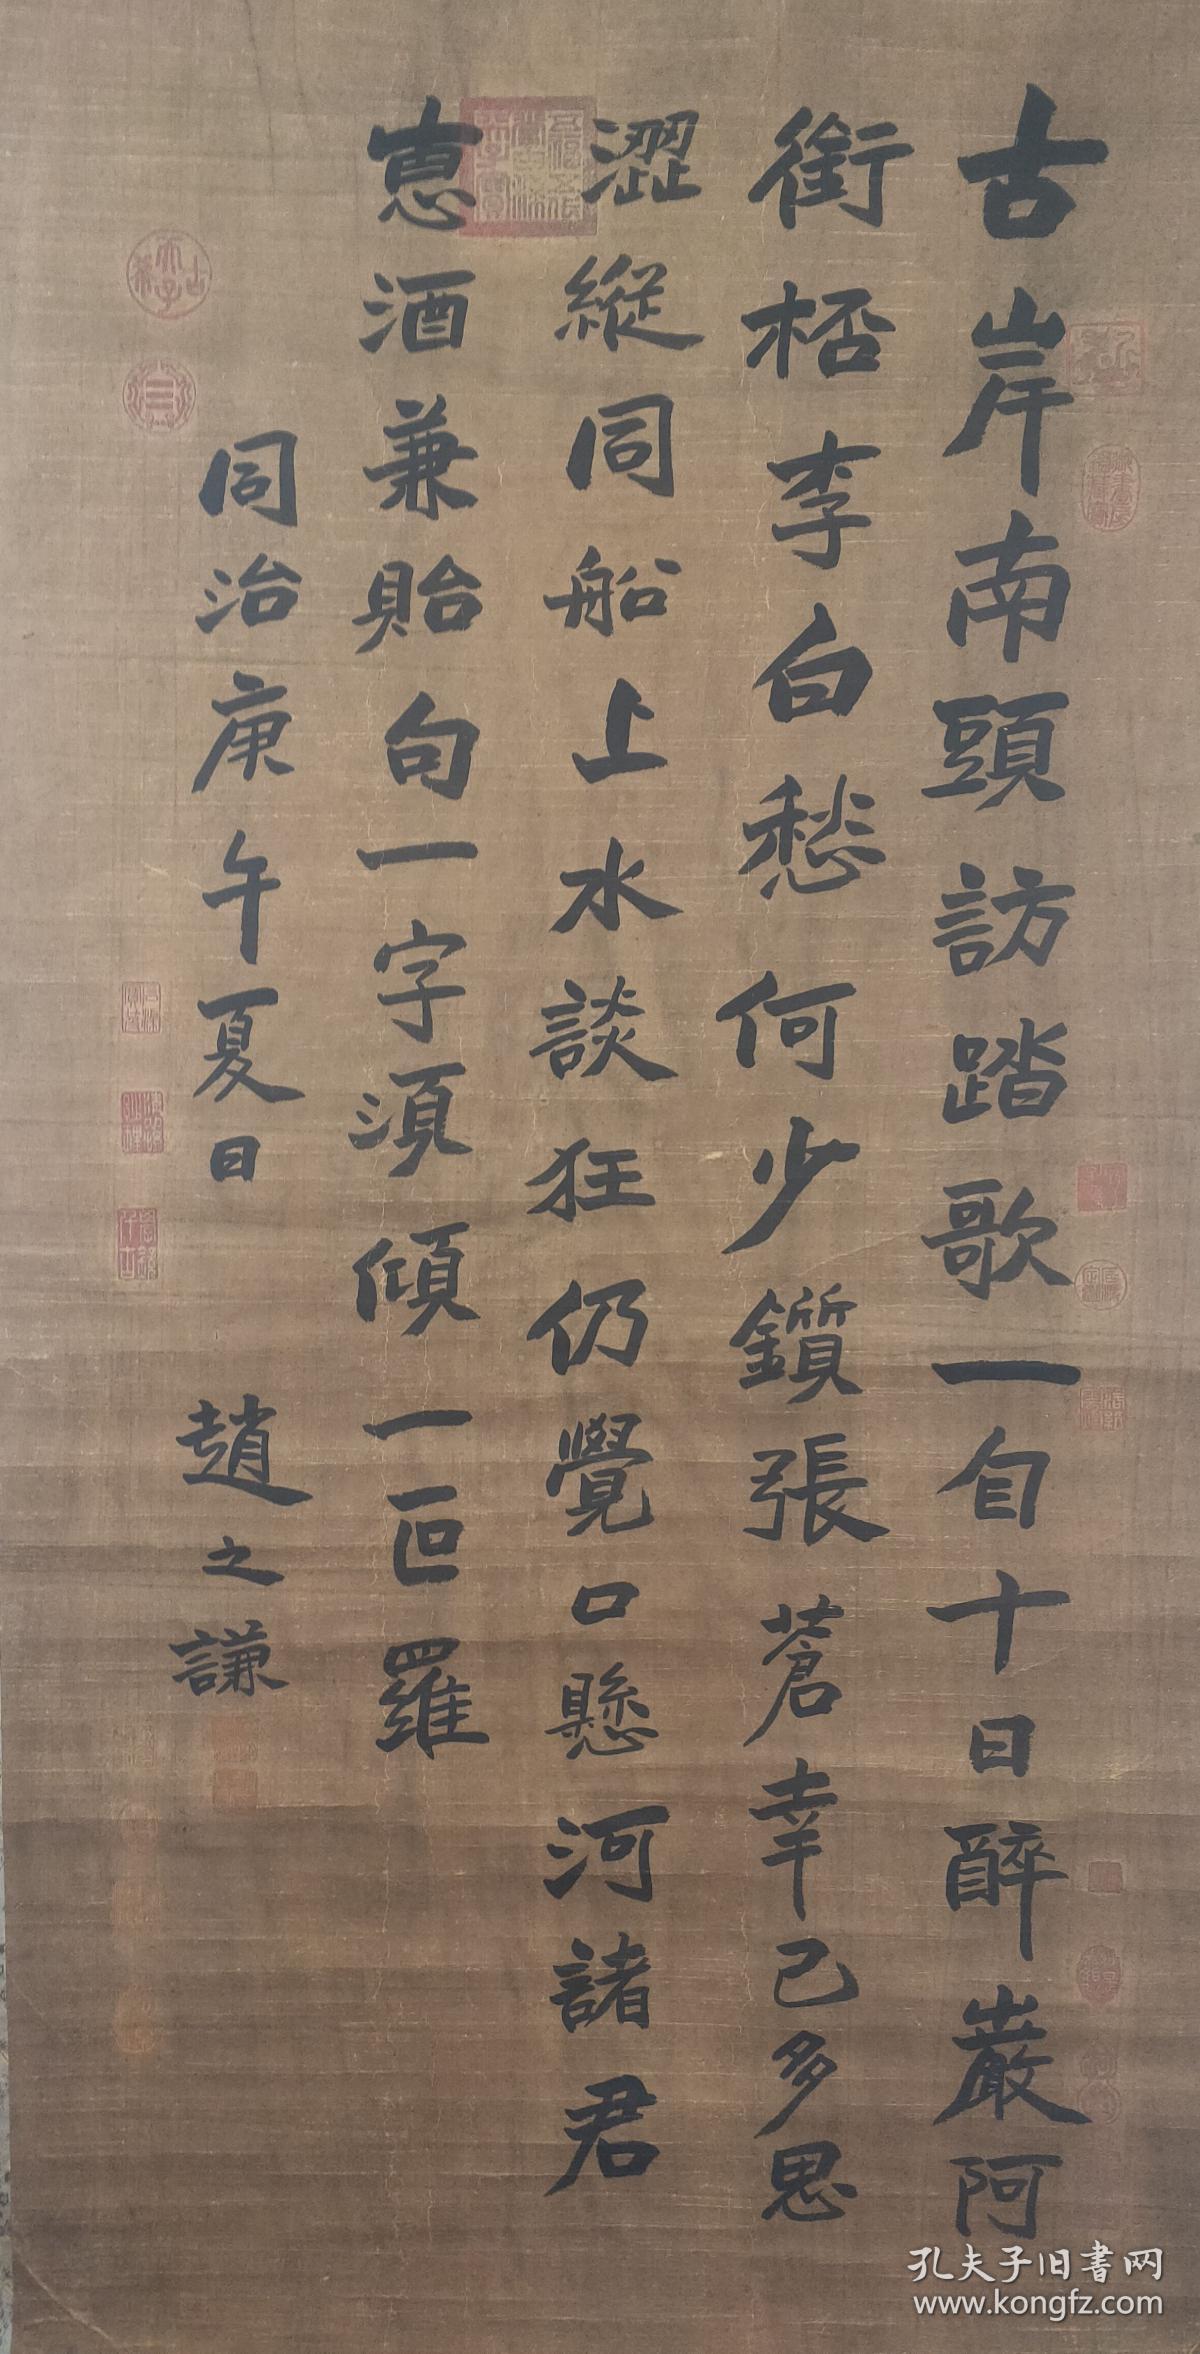 古岸南頭訪踏歌一自十日醉巖阿
銜桮李白愁何少鑽張蒼幸已多思
澀縱同船上水談狂仍覺口懸河諸君
恵酒兼貽句一字須傾一叵羅
同治庚午夏日 趙之謙
孔夫子旧書网
www.kongfz.com